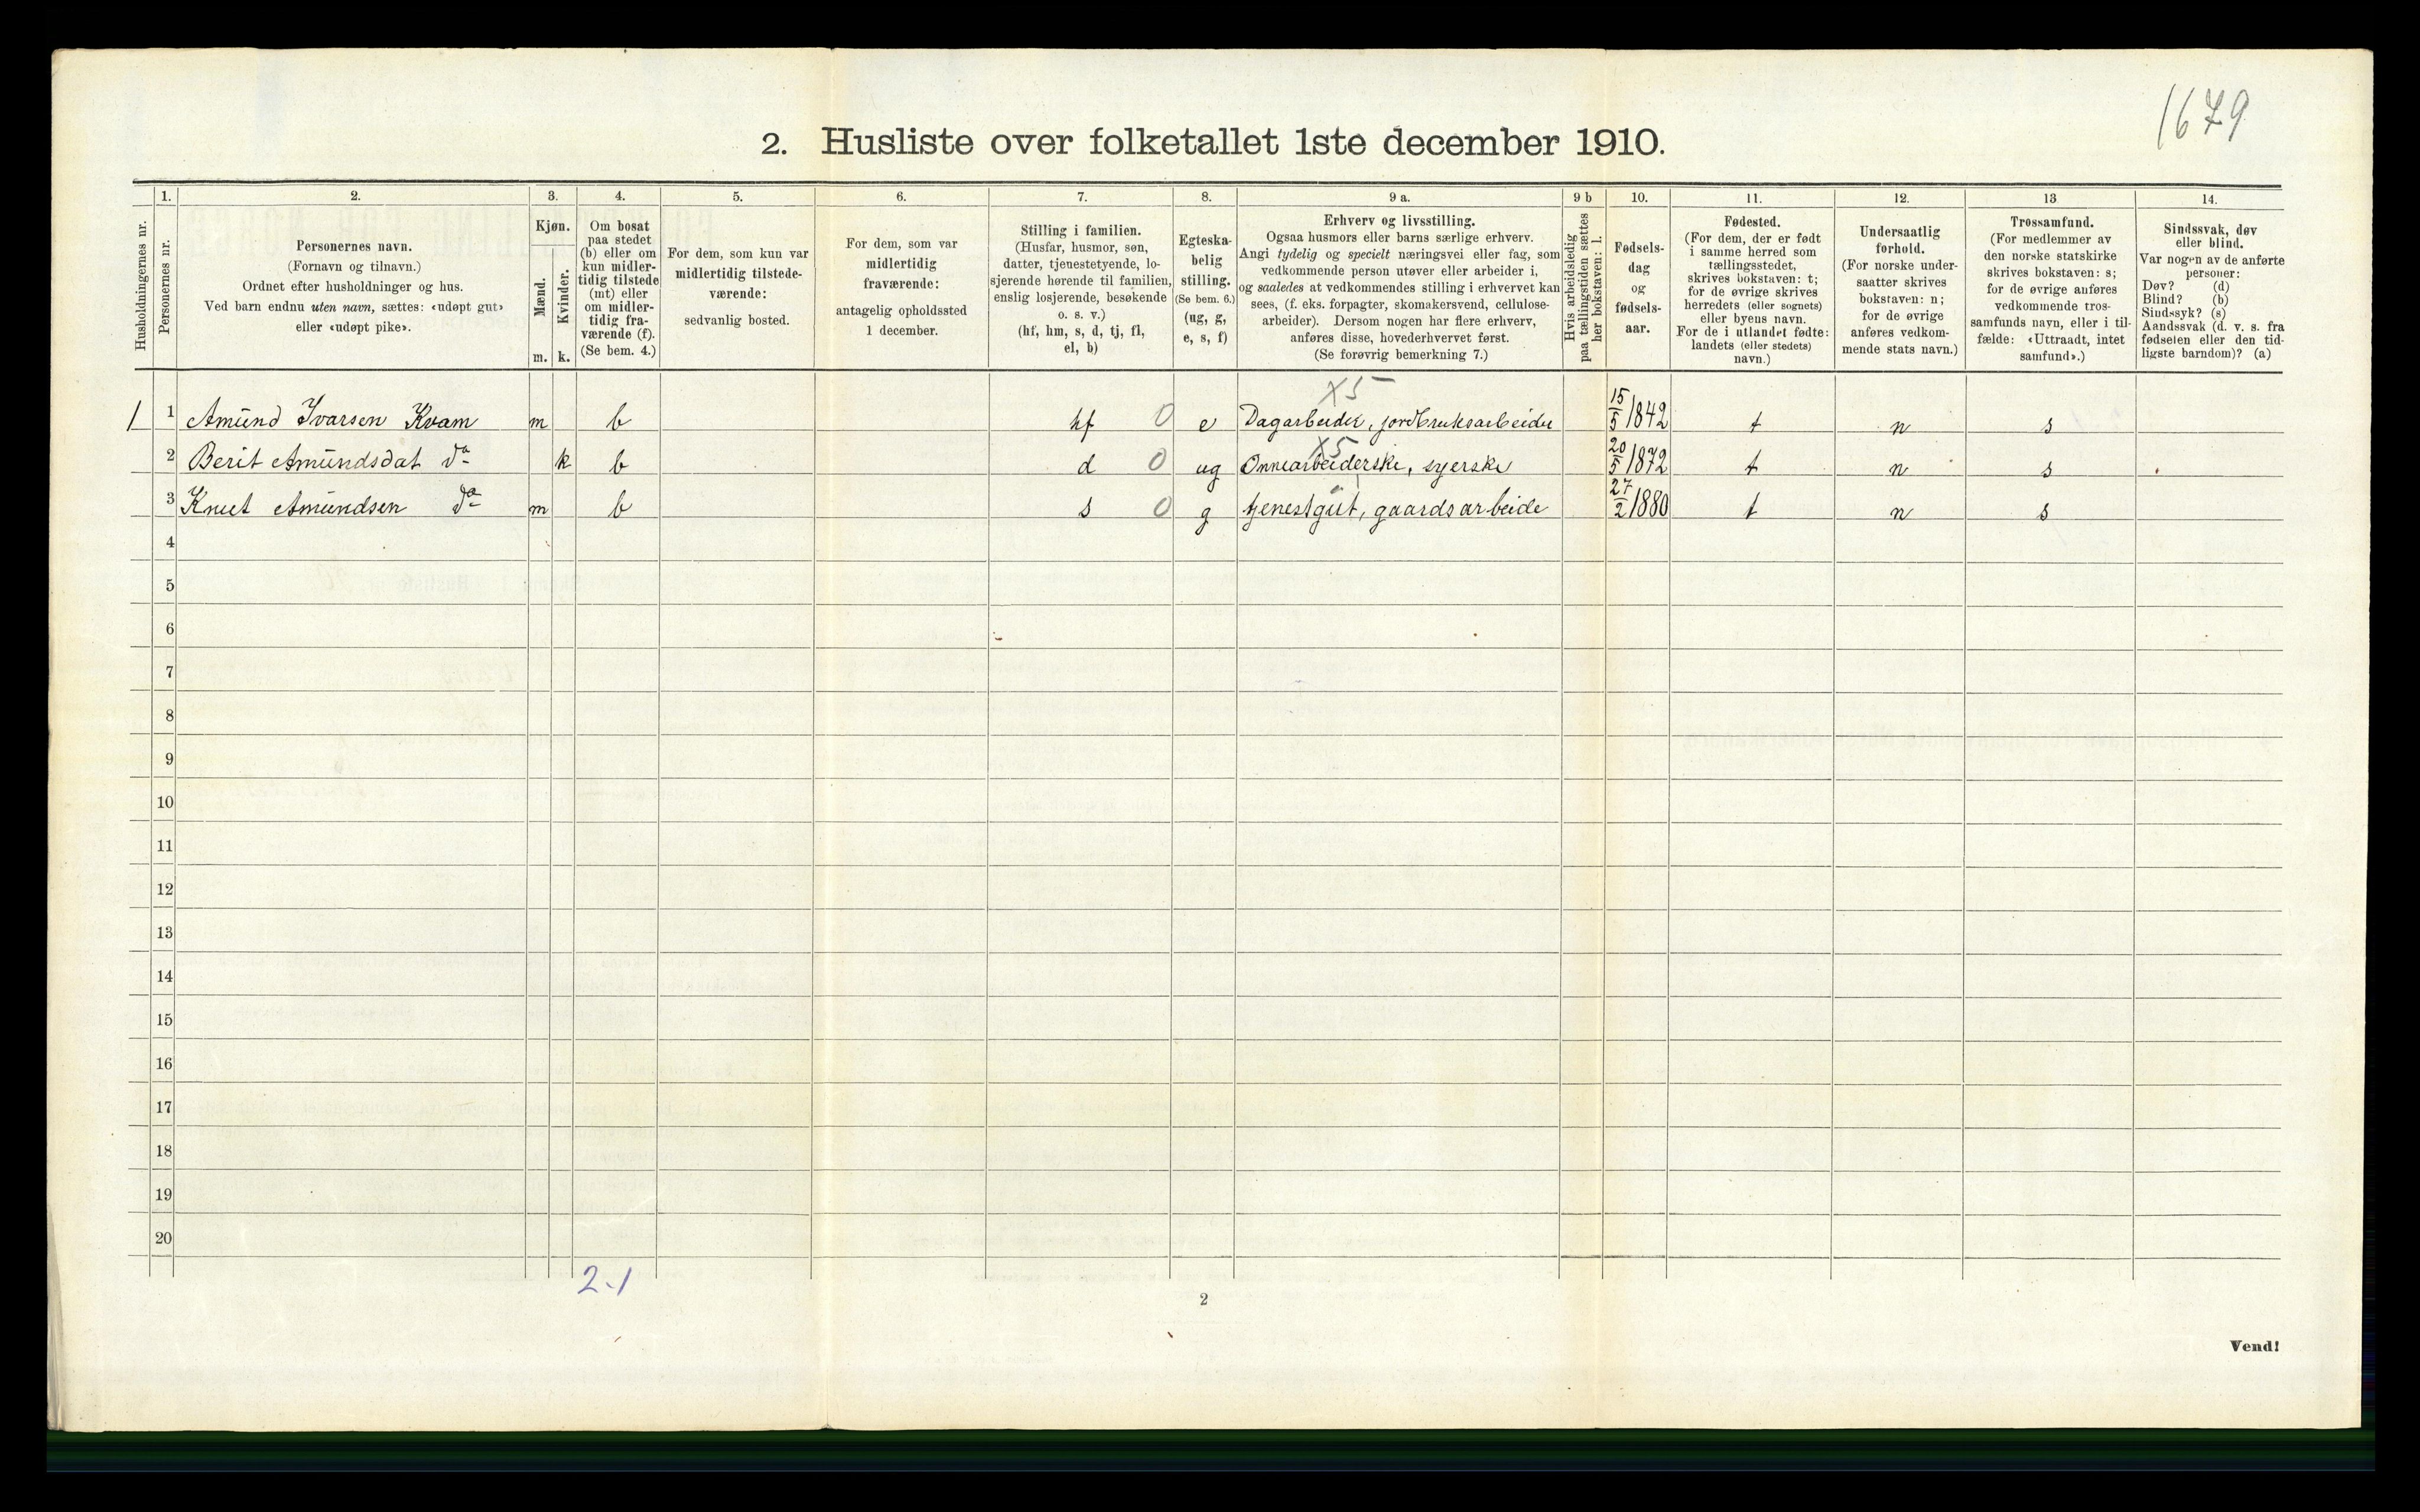 1679
2. Husliste over folketallet 1ste december 1910.
Husholdningernes nr.
1.
Personernes nr.
2.
Personernes navn.
(Fornavn og tilnavn.)
Ordnet efter husholdninger og hus.
Ved barn endnu uten navn, sættes: «udøpt gut»
eller «udøpt pike».
3.
Kjøn.
Mænd.
Kvinder.
m. k.
4.
Om bosat
paa stedet
(b) eller om
kun midler-
tidig tilstede
(mt) eller
om midler-
tidig fra-
værende (f).
(Se bem. 4.)
5.
For dem, som kun var
midlertidig tilstede-
værende:
sedvanlig bosted.
6.
For dem, som var
midlertidig
fraværende:
antagelig opholdssted
1 december.
7.
Stilling i familien.
(Husfar, husmor, søn,
datter, tjenestetyende, lo-
sjerende hørende til familien,
enslig losjerende, besøkende
o. s. v.)
(hf, hm, s, d, tj, fl,
el, b)
8.
Egteska-
belig
stilling.
(Se bem. 6.)
(ug, g,
e, s, f)
9 a.
Erhverv og livsstilling.
Ogsaa husmors eller barns særlige erhverv.
Angi tydelig og specielt næringsvei eller fag, som
vedkommende person utøver eller arbeider i,
og saaledes at vedkommendes stilling i erhvervet kan
sees, (f. eks. forpagter, skomakersvend, cellulose-
arbeider). Dersom nogen har flere erhverv,
anføres disse, hovederhvervet først.
(Se forøvrig bemerkning 7.)
9 b
Hvis arbeidsledig
paa tællingstiden sættes
her bokstaven: l.
10.
Fødsels-
dag
og
fødsels-
aar.
11.
Fødested.
(For dem, der er født
i samme herred som
tællingsstedet,
skrives bokstaven: t;
for de øvrige skrives
herredets (eller sognets)
eller byens navn.
For de i utlandet fødte:
landets (eller stedets)
navn.)
12.
Undersaatlig
forhold.
(For norske under-
saatter skrives
bokstaven: n;
for de øvrige
anføres vedkom-
mende stats navn.)
13
Trossamfund.
(For medlemmer av
den norske statskirke
skrives bokstaven: s;
for de øvrige anføres
vedkommende tros-
samfunds navn, eller i til-
fælde: «Uttraadt, intet
samfund».)
14.
Sindssvak, døv
eller blind.
Var nogen av de anførte
personer:
Døv? (d)
Blind? (b)
Sindssyk? (s)
Aandssvak (d. v. s. fra
fødselen eller den tid-
ligste barndom)? (a)
X5
1 1 Amund Ivarsen Kvam m b hf 0 e Dagarbeider, jordbruksarbeider 15/5 1842 t n s
X5
2 Berit Amundsdat do k b d 0 ug Onnearbeiderske, syerske 20/5 1872 t n s
3 Knut Amundsen do m b s 0 g tjenestgut, gaardsarbeide 27/2 1880 t n s
4
5
6
7
8
9
10
11
12
13
14
15
16
17
18
19
20
2-1
2
Vend!